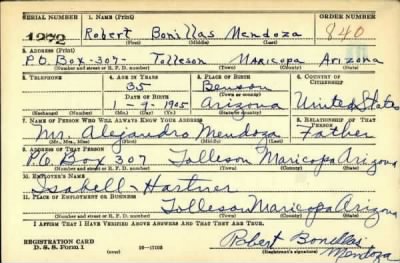 SERIAL NUMBER 1. NAME (Print) ORDER NUMBER
1272 Robert Bonillas Mendoza 840
(First) (Middle) (Last)
2. ADDRESS (Print)
P.O. Box-307- Tolleson Maricopa Arizona
(Number and street or R. F. D. number) (Town) (County) (State)
3. TELEPHONE 4. AGE IN YEARS 5. PLACE OF BIRTH 6. COUNTRY OF CITIZENSHIP
35 Benson
DATE OF BIRTH (Town or county)
1-9-1905 Arizona United States
(Exchange) (Number) (Mo.) (Day) (Yr.) (State or country)
7. NAME OF PERSON WHO WILL ALWAYS KNOW YOUR ADDRESS 8. RELATIONSHIP OF THAT PERSON
Mr. Alejandro Mendoza Father
(Mr., Mrs., Miss) (First) (Middle) (Last)
9. ADDRESS OF THAT PERSON
P.O. Box 307 Tolleson Maricopa Arizona
(Number and street or R. F. D. number) (Town) (County) (State)
10. EMPLOYER'S NAME
Isabell-Hartner
11. PLACE OF EMPLOYMENT OR BUSINESS
Tolleson Maricopa Arizona
(Number and street or R. F. D. number) (Town) (County) (State)
I AFFIRM THAT I HAVE VERIFIED ABOVE ANSWERS AND THAT THEY ARE TRUE.
REGISTRATION CARD
D. S. S. Form 1 Robert Bonillas Mendoza
(Registrant's signature)